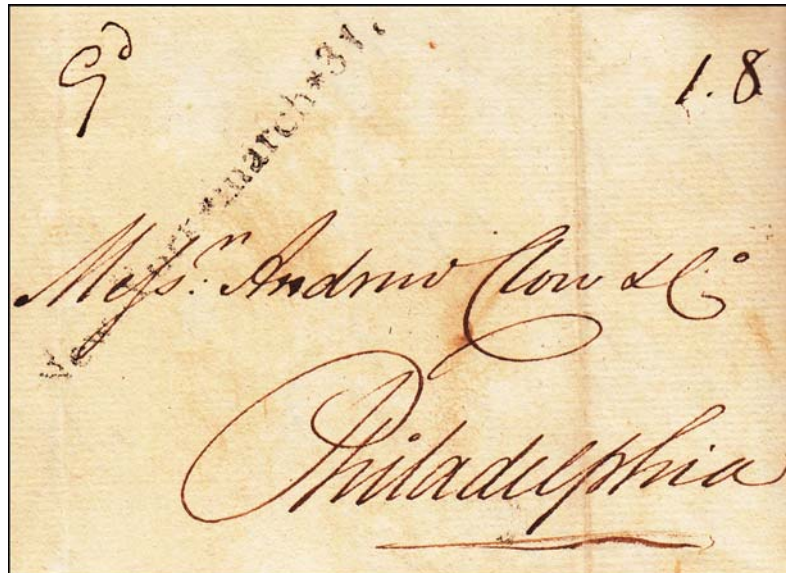 9d
1.8
march*31,
Messrs. Andrew Clow & Co
Philadelphia